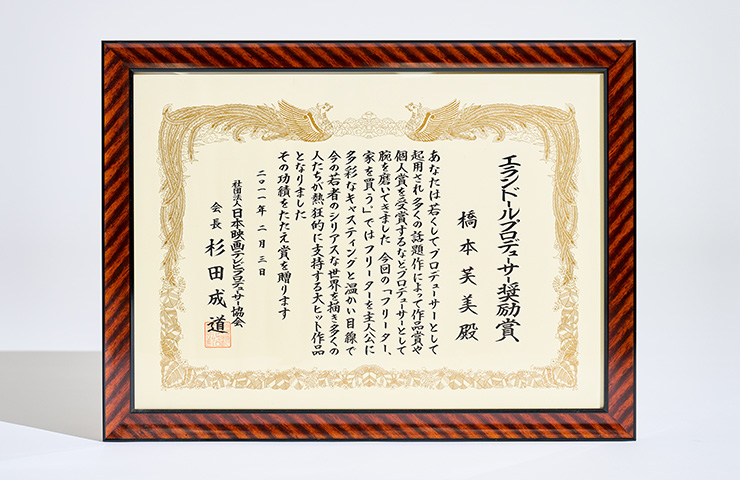 エランドールプロデューサー奨励賞
橋本芙美殿
あなたは若くしてプロデューサーとして
起用され多くの話題作によって作品賞や
個人賞を受賞するなどプロデューサーとして
腕を磨いてきました 今回の「フリーター、
家を買う。」では フリーターを主人公に
多彩なキャスティングと温かい目線で
今の若者のシリアスな世界を描き多くの
人たちが熱狂的に支持する大ヒット作品
となりました
その功績をたたえ賞を贈ります
二〇一一年 二月 三日
社団法人日本映画テレビプロデューサー協会
会長 杉田成道